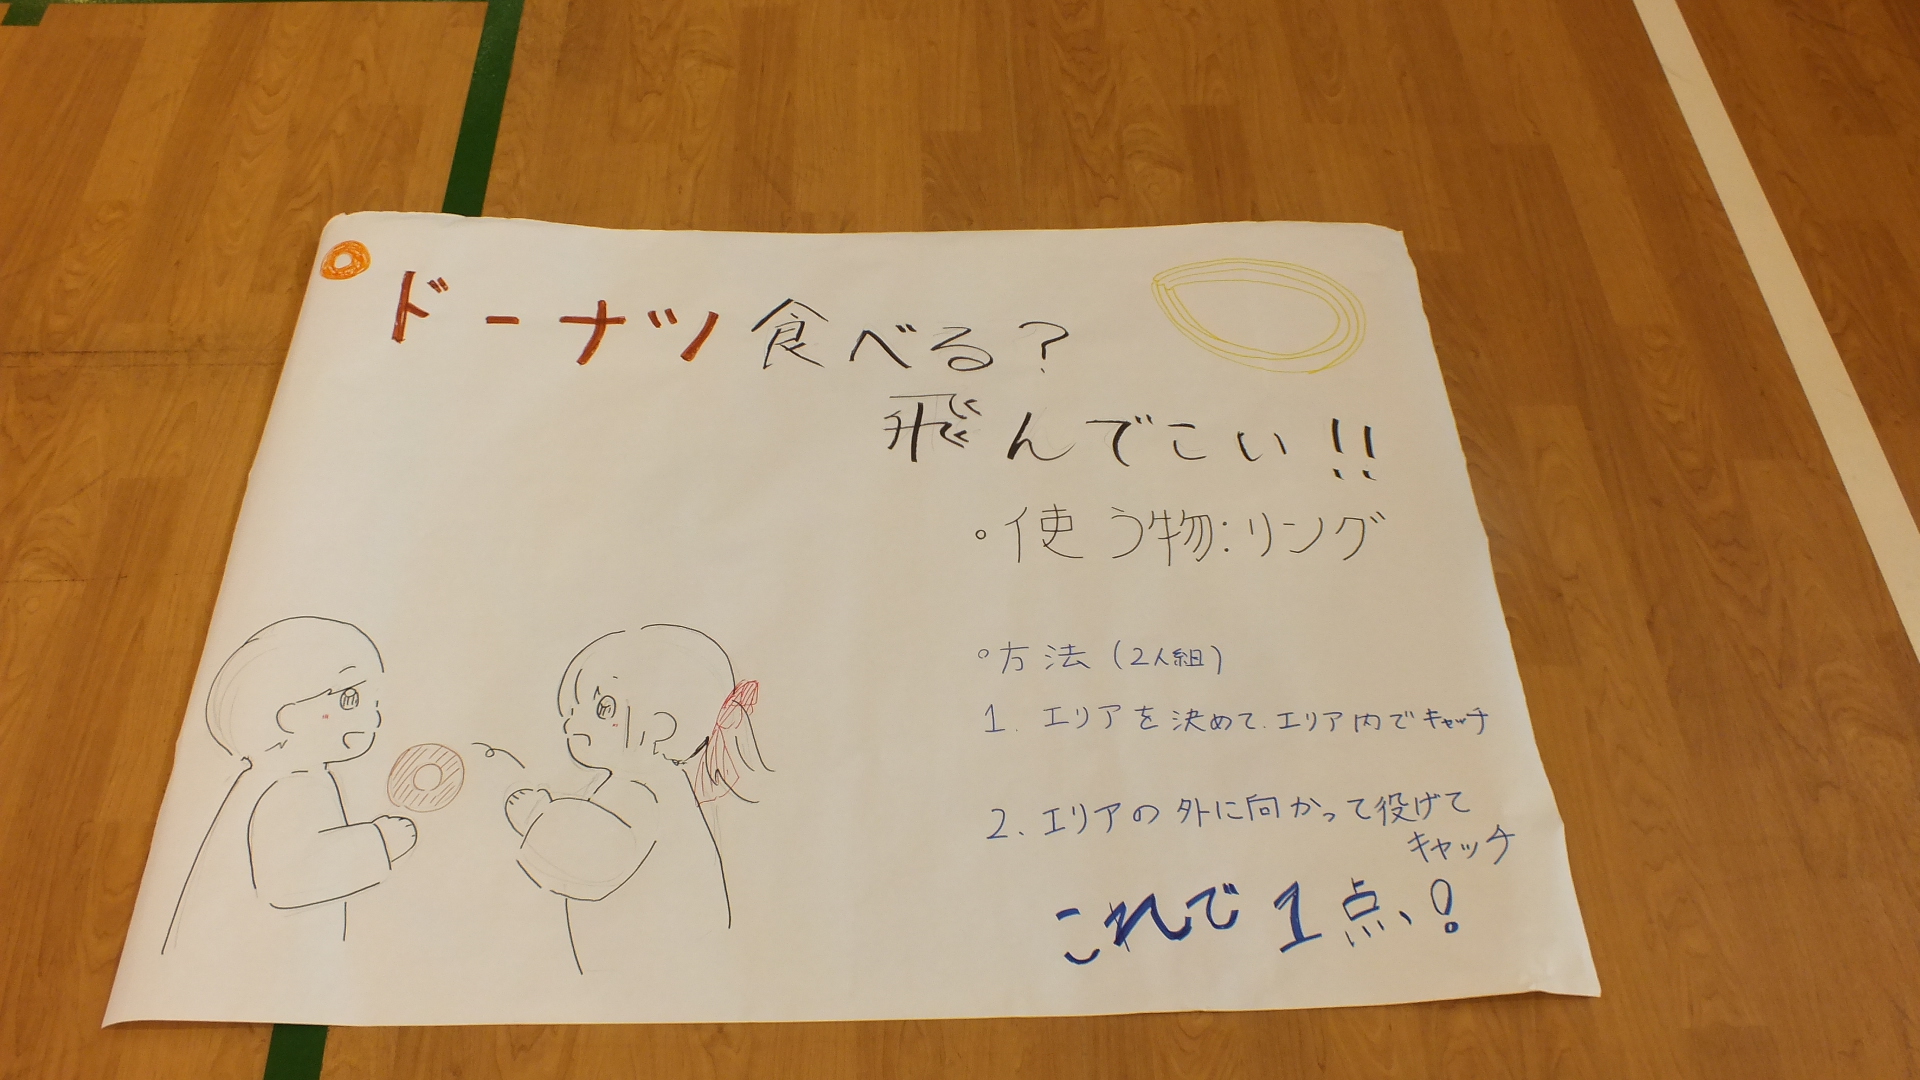 ドーナツ食べる?
飛んでこい!!
・使う物:リング
・方法(2人組)
1. エリアを決めて、エリア内でキャッチ
2. エリアの外に向かって役げて
キャッチ
これで1点!